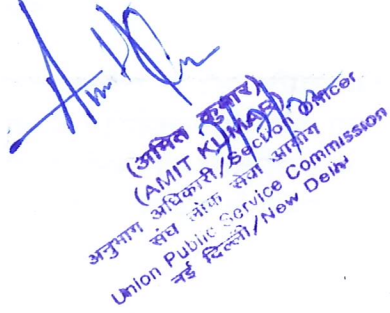 (अमित कुमार)
(AMIT KUMAR)
अनुभाग अधिकारी/Section Officer
संघ लोक सेवा आयोग
Union Public Service Commission
नई दिल्ली/New Delhi